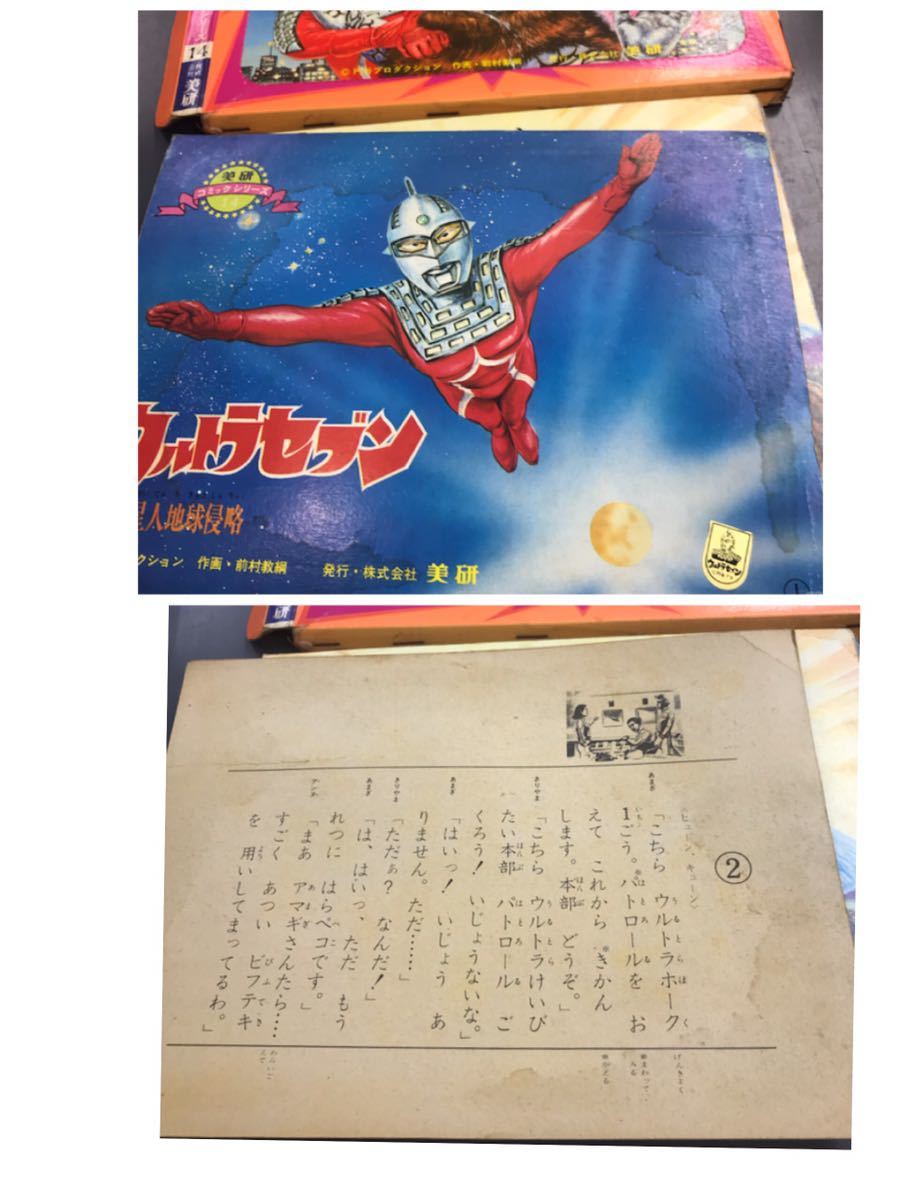 14
美研
©円谷プロダクション 作画・前村教綱 発行・株式会社 美研
美研
コミックシリーズ
14
ウルトラセブン
星人地球侵略
クション 作画・前村教綱 発行・株式会社 美研
ウルトラセブン
1
研
②
(ヒュードン、キューン)
あまぎ 「こちら ウルトラホーク
1ごう。パトロールを お
えて これから きかん
します。本部 どうぞ。」
きりやま 「こちら ウルトラけいび
たい本部 パトロール ご
くろう! いじょうないな。」
あまぎ 「はいっ! いじょう あ
りません。ただ……」
きりやま 「ただぁ? なんだ!」
あまぎ 「は、はいっ、ただ もう
れつに はらペコです。」
アンヌ 「まあ アマギさんたら……
すごく あつい ビフテキ
を 用いしてまってるわ。」
げんきよく
※まわって
みる
※かえる